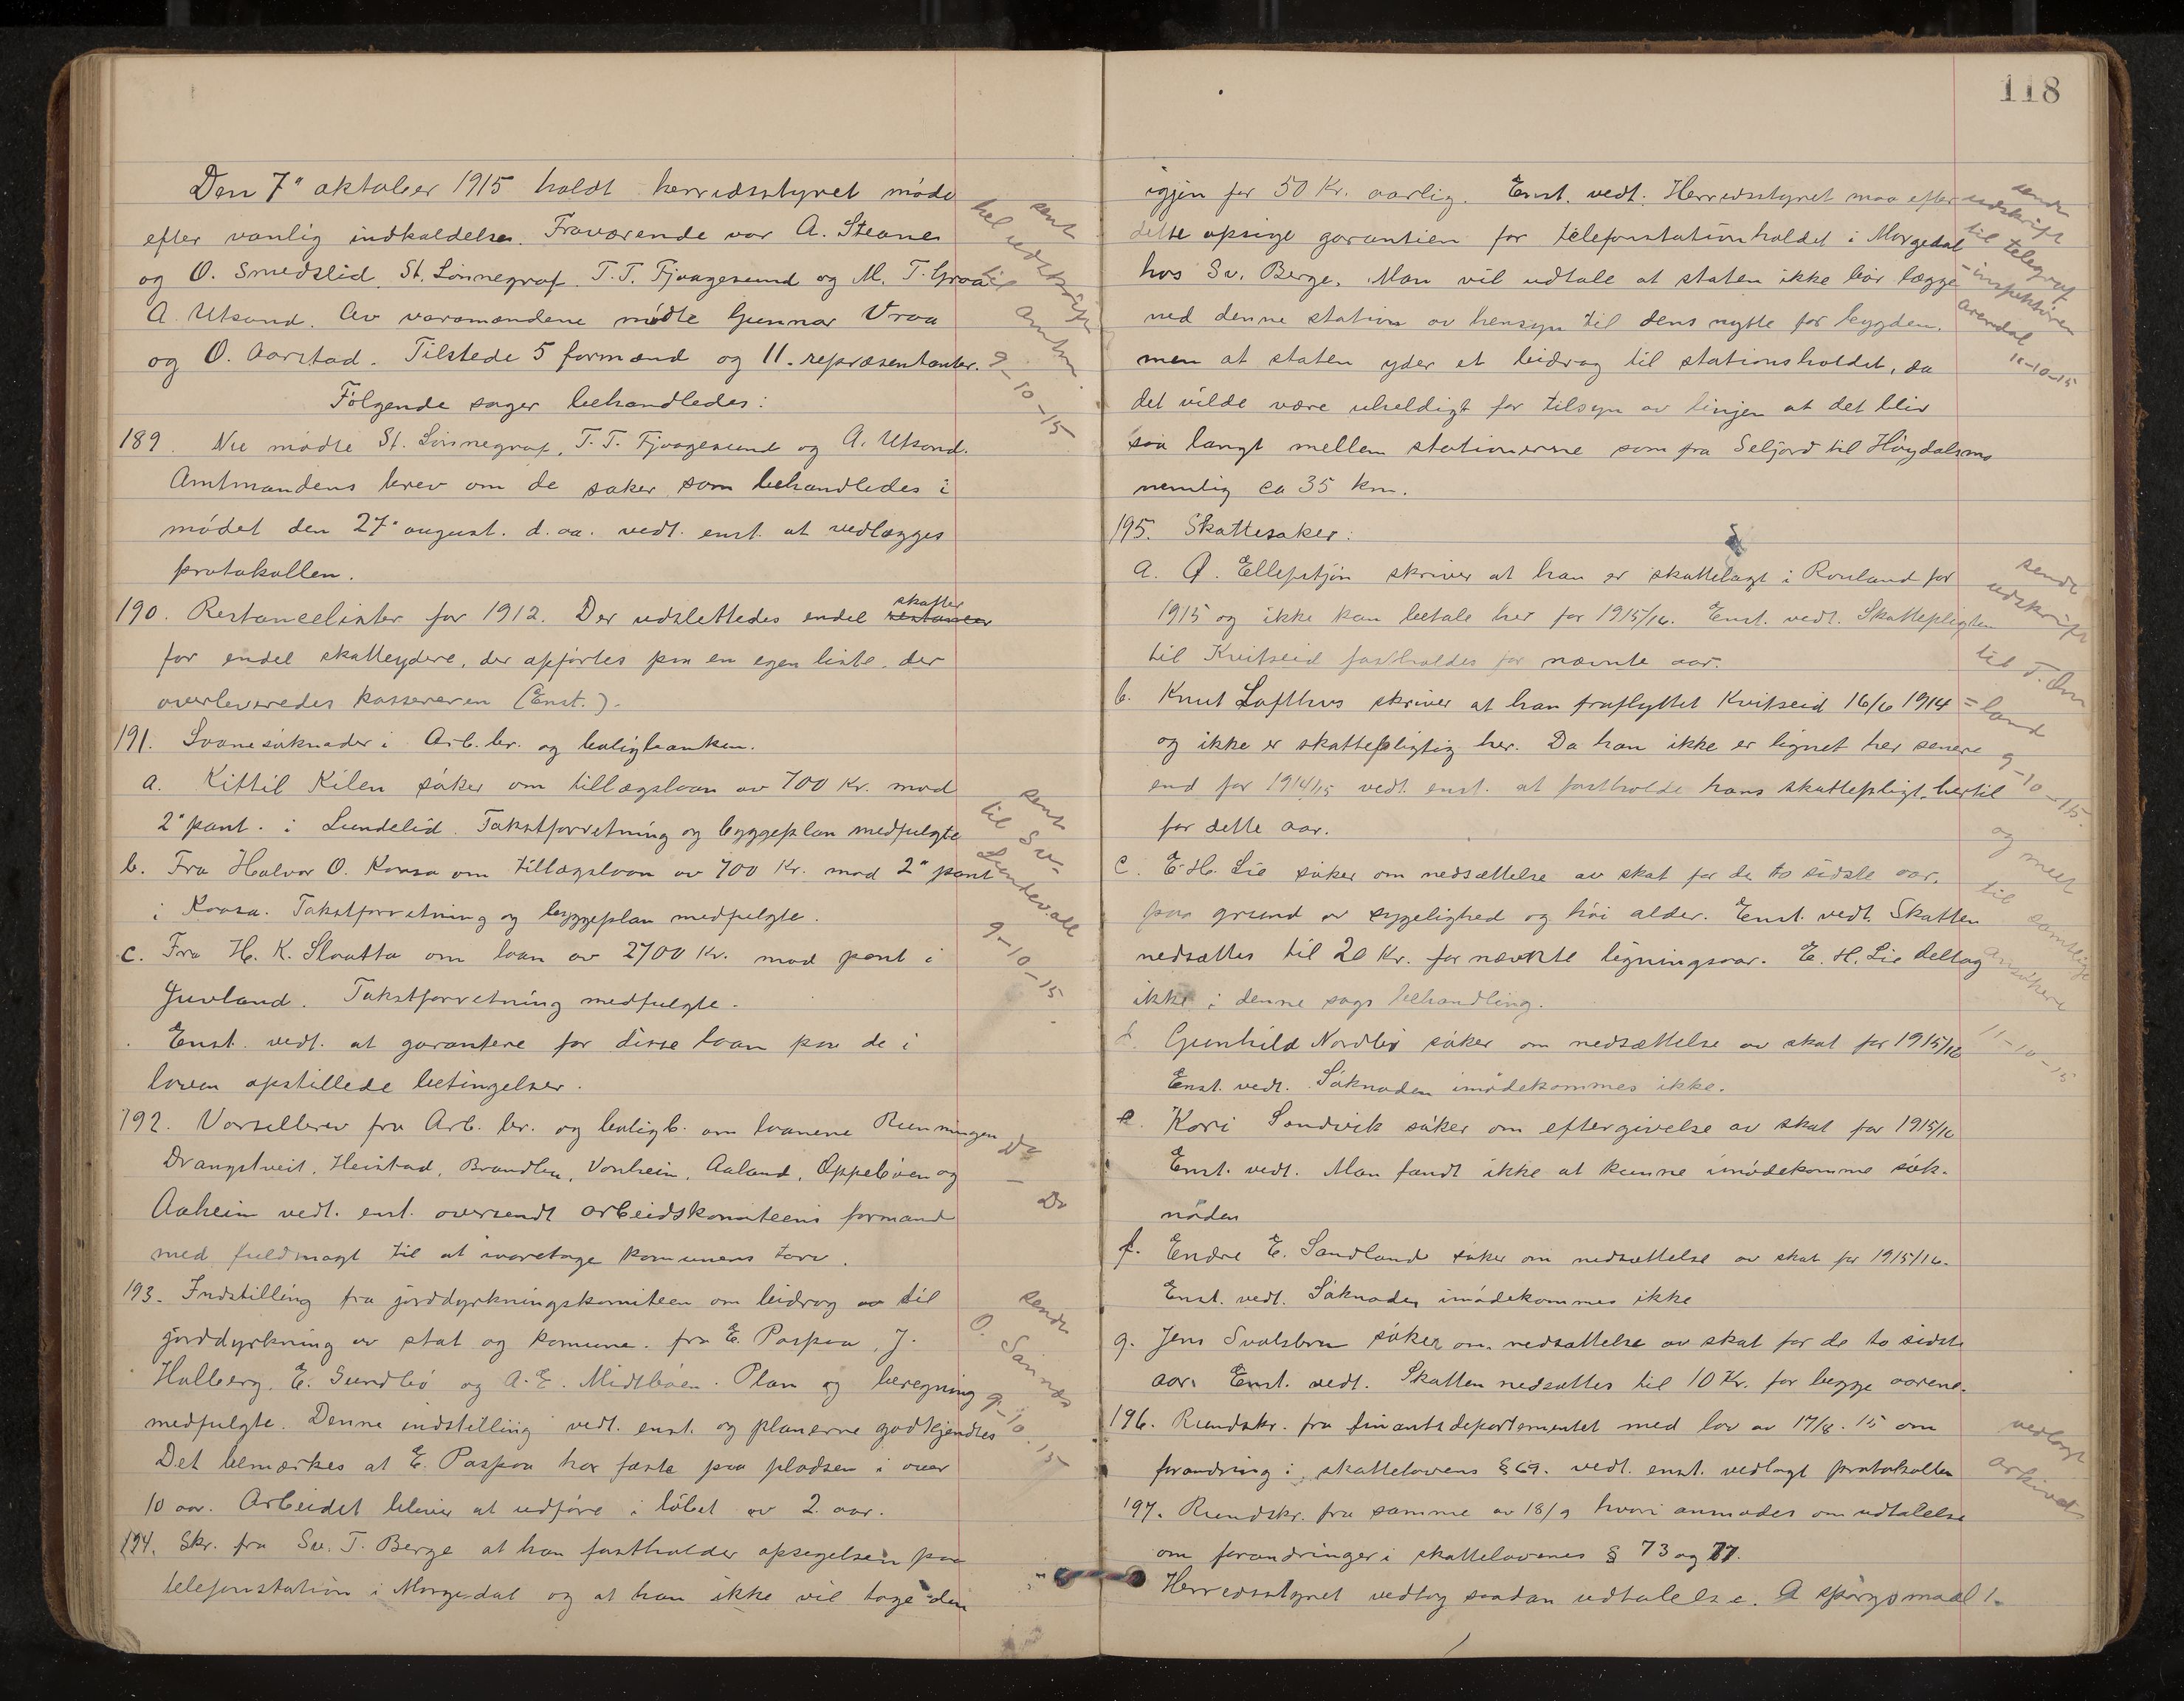 Den 7" oktober 1915 holdt herredsstyret møde
efter vanlig indkaldelse. Fraværende var A. Steane
og O. Smedslid, St. Lønnegraf, T. T. Fjaagesund og M. T. Groa
A Utsond. Av varamændene mødte Gunnar Vraa
og O. Aarstad. Tilstede 5 formænd og 11 repræsentanter.
Følgende sager behandledes:
189. Nu mødte St. Lønnegraf, T. T. Fjaagesund og A. Utsond.
Amtmandens brev om de saker som behandledes i
mødet den 27" august. d. aa. vedt. enst. at vedlægges
protokollen.
skatter
190. Restancelister for 1912. Der udslettedes endel restancer
for endel skatteydere, der opførtes paa en egen liste, der
overleveredes kassereren (Enst.).
191. Laanesøknader i Arb. br. og boligbanken.
a. Kittil Kilen søker om tillægslaan av 700 Kr. mod
2" pant. i Lundelid. Takstforretning og byggeplan medfulgte
b. Fra Halvor O. Kaasa om tillægslaan av 700 Kr. mod 2" pant
i Kaasa. Takstforretning og byggeplan medfulgte.
c. Fra H. K. Slaatta om laan av 2700 Kr. mod pant i
Juvland. Takstforretning medfulgte.
Enst. vedt. at garantere for disse laan paa de i
loven opstillede betingelser.
192. Varselbrev fra Arb. br. og boligb. om laanene Runningen
Drangstveit, Heistad, Brandlia, Vonheim, Aaland, Oppebøen og
Aaheim vedt. enst. oversendt arbeidskomiteens formand
med fuldmagt til at ivaretage komunens tarv.
193. Indstilling fra jorddyrkningskomiteen om bidrag av til
jorddyrkning av stat og komune. fra E. Paspaa, J.
Halberg, E. Sundbø og A. E. Midtbøen. Plan og beregning
medfulgte. Denne indstilling vedt. enst. og planerne godkjendtes
Det bemærkes at E. Paspaa har fæste paa pladsen i over
10 aar. Arbeidet bliver at udføre i løbet av 2 aar.
194. Skr. fra Sv. T. Berge at han fastholder opsigelsen paa
telefonstation i Morgedal og at han ikke vil tage den
sent
hel udskrift
til
amtm.
9-10-15
sent
til Sv.
Lundevall
9-10-15
Do
— Do
sendt
O. Sannes
9-10-15
118
igjen for 50 Kr. aarlig. Enst. vedt: Herredsstyret maa efter
dette opsige garantien for telefonstationholdet i Morgedal
hos Sv. Berge. Man vil udtale at staten ikke bør lægge
ned denne station av hensyn til dens nytte for bygden.
men at staten yder et bidrag til stationsholdet, da
det vilde være uheldigt for tilsyn av linjen at det blir
saa langt mellem stationerne som fra Seljord til Høydalsmo
nemlig ca 35 km.
195. Skattesaker:
a. O. Ellefstjøn skriver at han er skattelagt i Rauland for
1915 og ikke kan betale her for 1915/16. Enst. vedt. Skattepligten
til Kvitseid fastholdes for nævnte aar.
b. Knut Lofthus skriver at han fraflyttet Kvitseid 16/6 1914
og ikke er skattepligtig her. Da han ikke er lignet her senere
end for 1914/15 vedt. enst. at fastholde hans skattepligt hertil
for dette aar.
c. E. H. Lie søker om nedsættelse av skat for de to sidste aar,
paa grund av sygelighed og høi alder. Enst. vedt. Skatten
nedsættes til 20 Kr. for nævnte ligningsaar. E. H. Lie deltog
ikke i denne sags behandling.
d. Gunhild Nordbø søker om nedsættelse av skat for 1915/16
Enst. vedt. Søknaden imødekommes ikke.
e. Kari Sandvik søker om eftergivelse av skat for 1915/16
Enst. vedt. Man fandt ikke at kunne imødekomme søk-
naden
f. Endre E. Sandland søker om nedsættelse av skat for 1915/16.
Enst. vedt. Søknaden imødekommes ikke
g. Jens Svalsbru søker om nedsættelse av skat for de to sidste
aar. Enst. vedt. Skatten nedsættes til 10 Kr. for begge aarene.
196. Rundskr. fra finantsdepartementet med lov av 17/8. 15 om
forandring i skattelovens § 69. vedt. enst. vedlagt protokollen
197. Rundskr. fra samme av 18/9 hvori anmodes om udtalelse
om forandringer i skattelovenes § 73 og 77.
Herredsstyret vedtog saadan udtalelse. A spørgsmaal 1.
sendt
udskrift
til telegraf
-inspektøren
Arendal
11-10-15
sendt
udskrift
til
=land
9-10-15.
og meld
til samtlige
ansøkere
11-10-15
vedlagt
arkivet